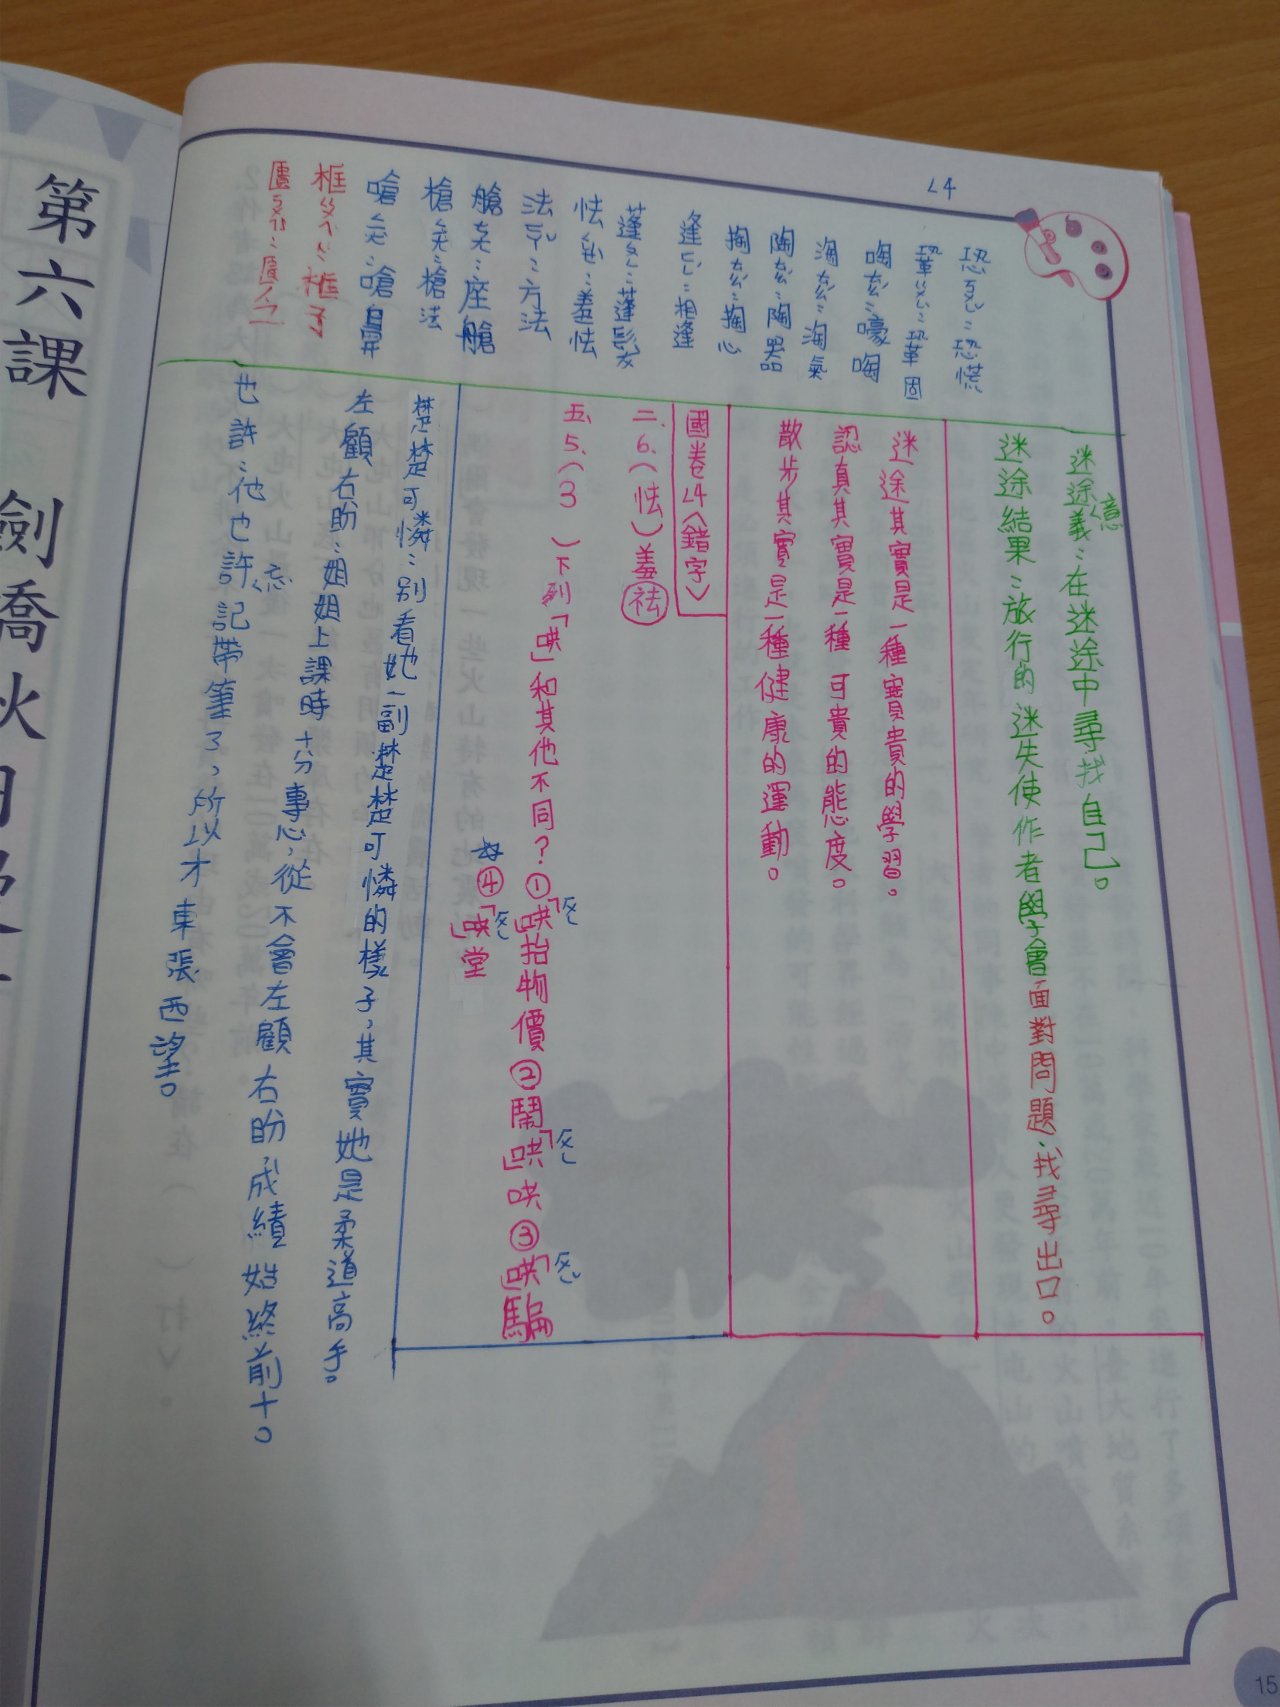 L4
恐ㄎㄨㄥˇ：恐慌
鞏ㄍㄨㄥˇ：鞏固
啕ㄊㄠˊ：嚎啕
淘ㄊㄠˊ：淘氣
陶ㄊㄠˊ：陶器
掏ㄊㄠ：掏心
逢ㄈㄥˊ：相逢
蓬ㄆㄥˊ：蓬髮
怯ㄑㄩㄝˋ：羞怯
法ㄈㄚˇ：方法
艙ㄘㄤ：座艙
槍ㄑㄧㄤ：槍法
嗆ㄑㄧㄤ：嗆鼻
框ㄎㄨㄤ：框子
迷途意義：在迷途中尋找自己。
迷途結果：旅行的迷失使作者學會面對問題，找尋出口。
迷途其實是一種寶貴的學習。
認真其實是一種可貴的態度。
散步其實是一種健康的運動。
國卷L4<錯字>
二、6.（怯）羞祛
五、5.（3）下列「哄」和其他不同？①「哄」抬物價②鬧「哄」哄③「哄」騙
④「哄」堂
楚楚可憐：別看她一副楚楚可憐的樣子，其實她是柔道高手。
左顧右盼：姐姐上課時十分專心，從不會左顧右盼，成績始終前十。
也許：他也許忘記帶筆了，所以才東張西望。
第六課
15